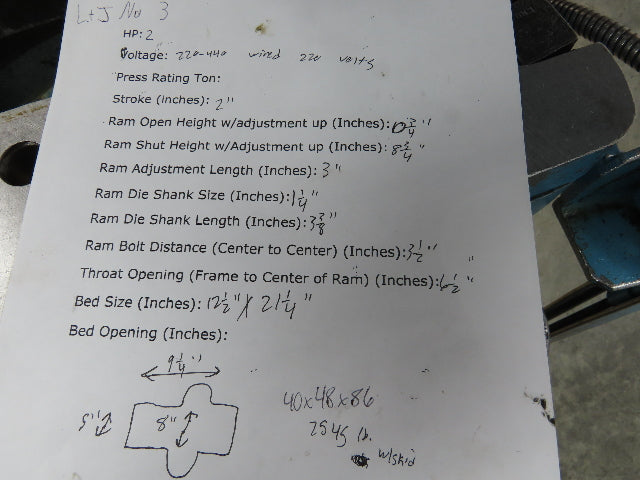 L+J No 3
HP: 2
Voltage: 220-440 wired 220 volts
Press Rating Ton:
Stroke (Inches): 2"
Ram Open Height w/adjustment up (Inches): 10 3/4"
Ram Shut Height w/Adjustment up (Inches): 8 3/4"
Ram Adjustment Length (Inches): 3"
Ram Die Shank Size (Inches): 1 1/4"
Ram Die Shank Length (Inches): 3 3/8"
Ram Bolt Distance (Center to Center) (Inches): 3 1/2"
Throat Opening (Frame to Center of Ram) (Inches): 6 1/2"
Bed Size (Inches): 12 1/2" X 21 1/4"
Bed Opening (Inches):
9 1/4"
5" 8"
40x48x86
2545 lb.
w/skid